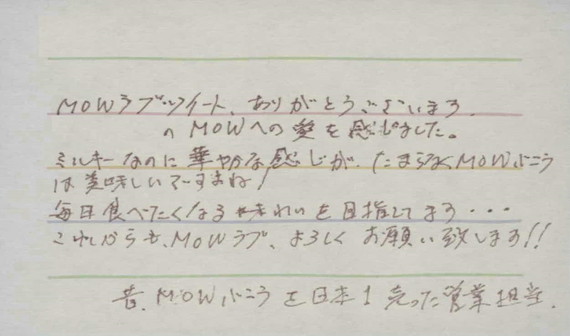 MOWラブツイート、ありがとうございます。
の MOWへの愛を感じました。
ミルキーなのに華やかな感じが、たまらなくMOWバニラ
は美味しいですよね!
毎日食べたくなるおいしいを目指してます・・・
これからも、MOWラブ、よろしくお願い致します!!
昔、MOWバニラを日本1売った営業担当.